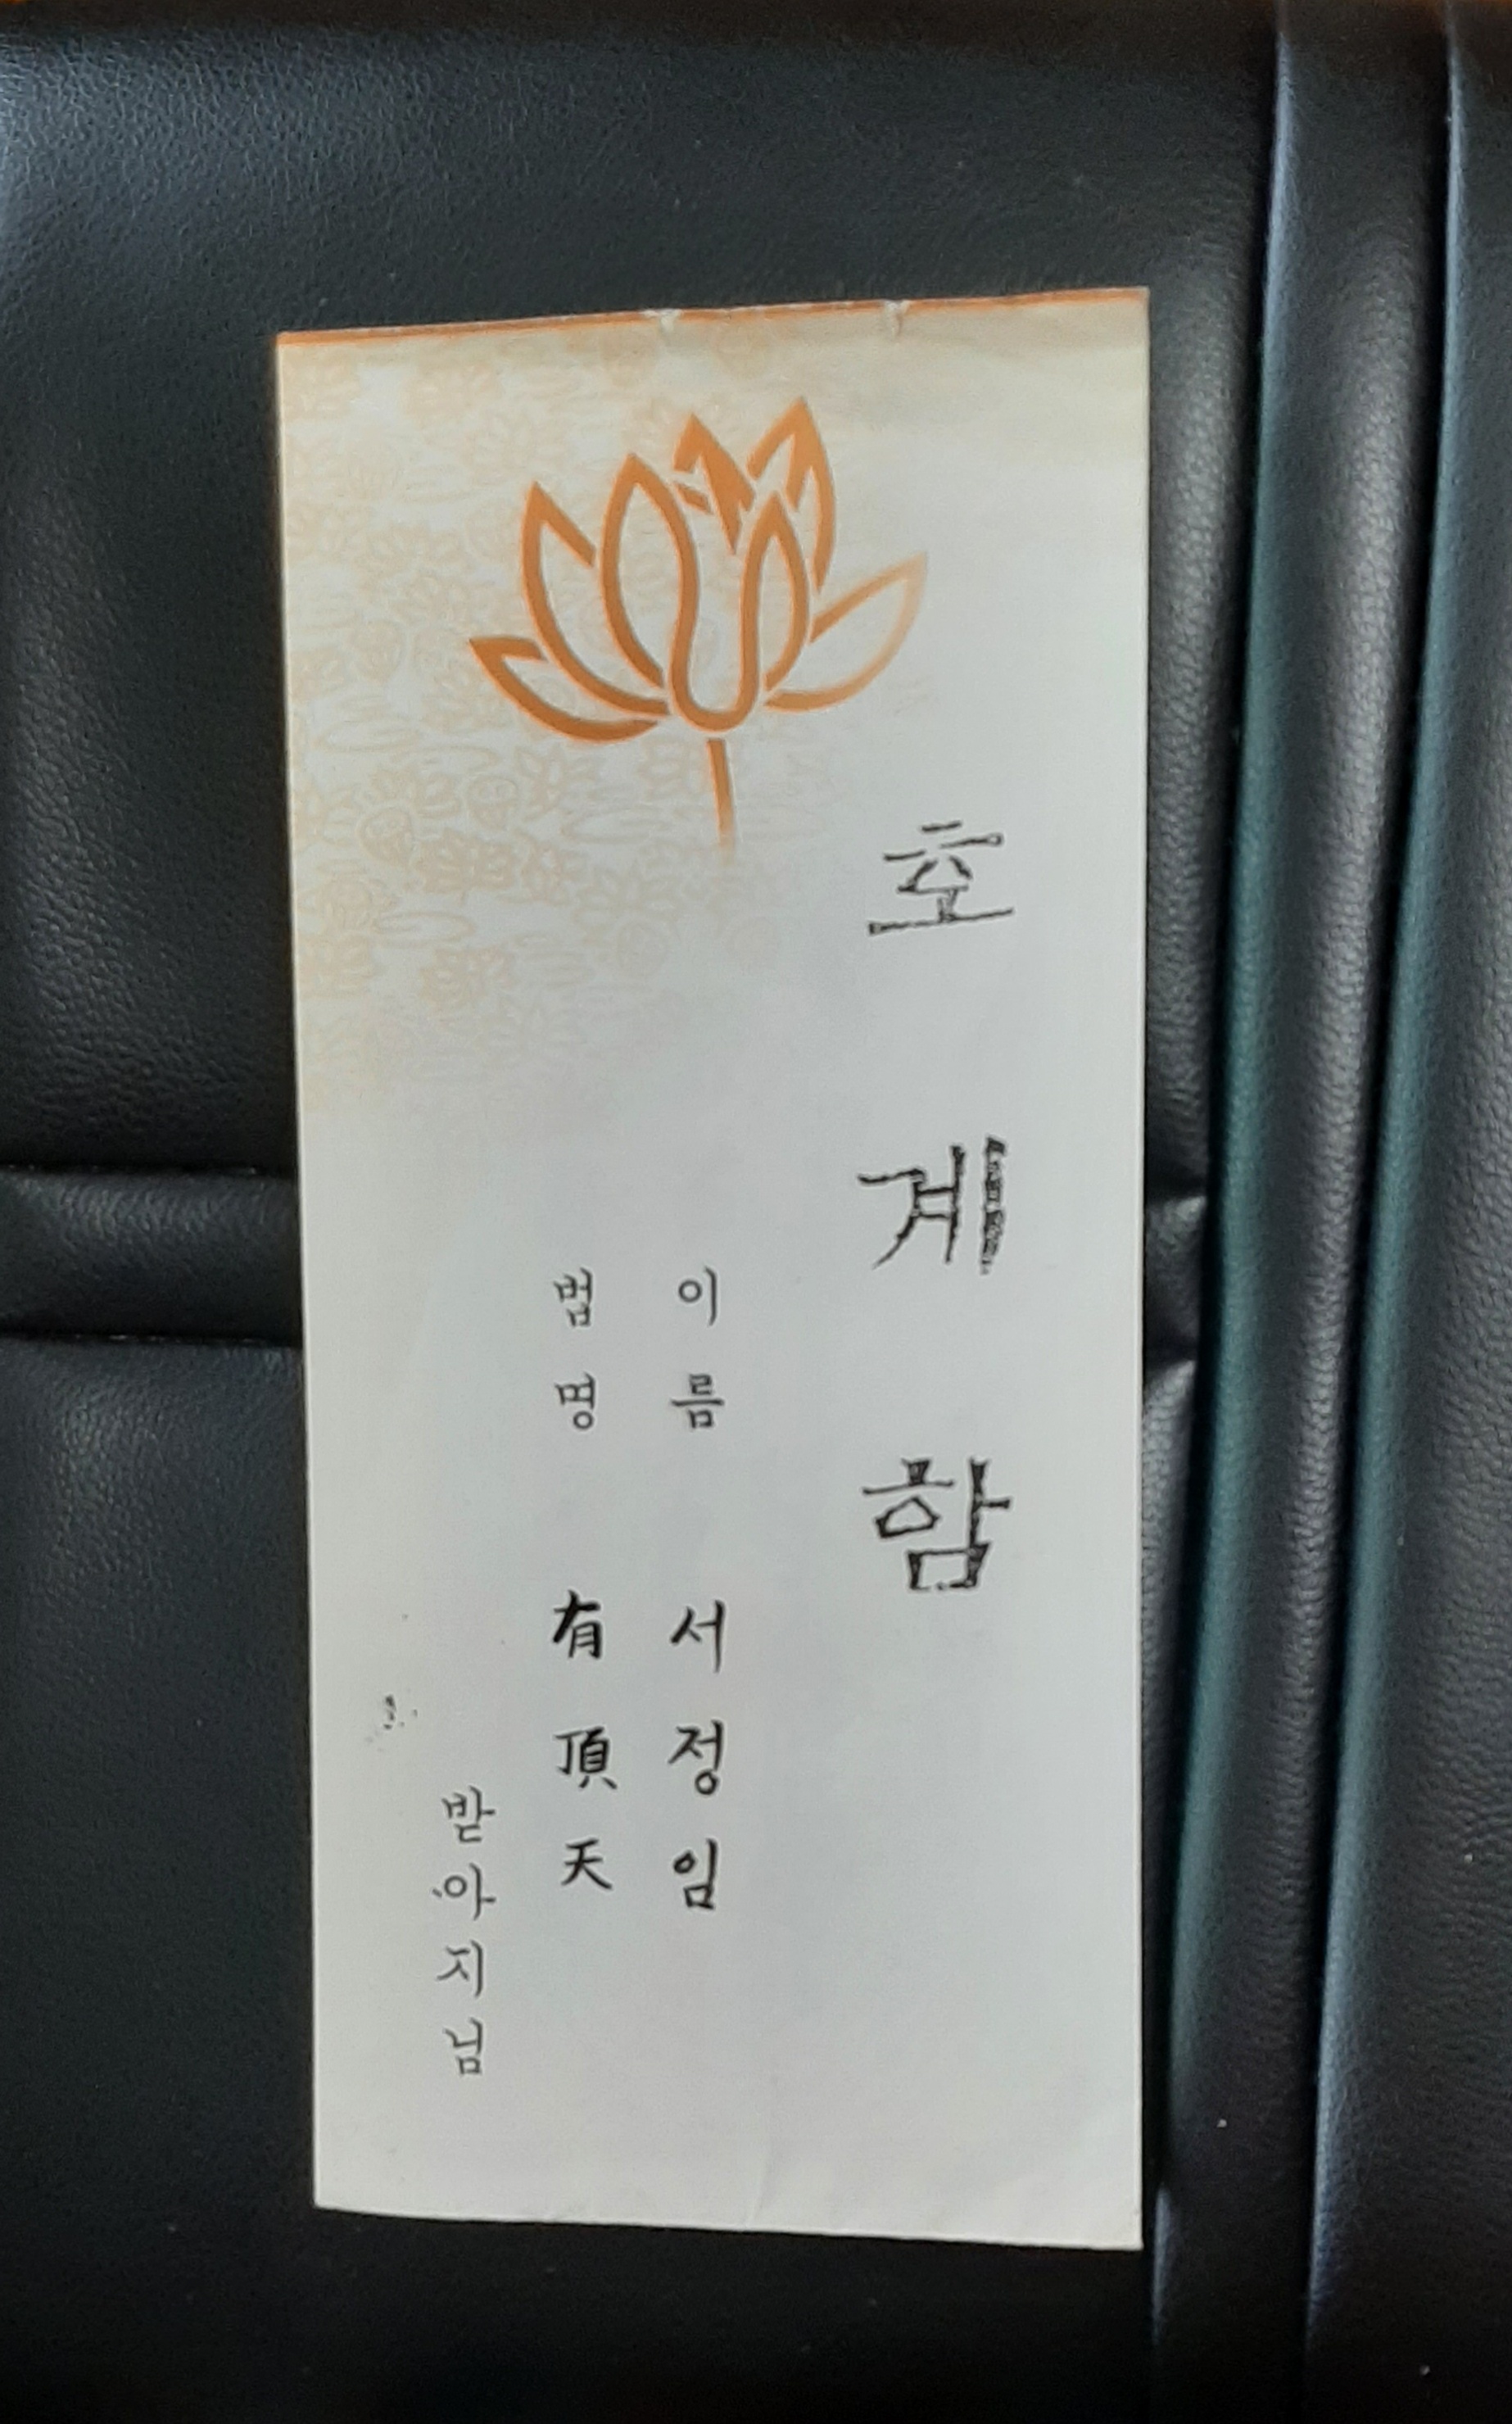 호계함
이름 서정임
법명 有頂天
받아지님